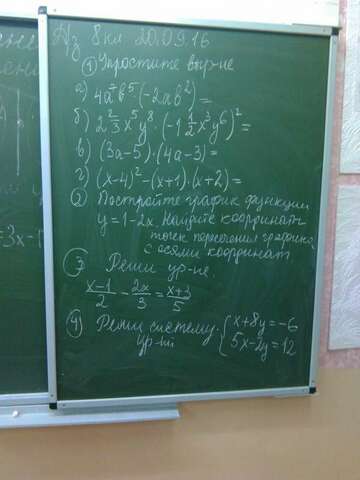 Дз 8 кл 20.09.16
① Упростите выр-ие
а) 4a⁷b⁵·(-2ab²)=
б) 2 2/3 x⁵y⁸·(-1 1/2 x³y⁶)²=
в) (3a-5)·(4a-3)=
г) (x-4)²-(x+1)·(x+2)=
② Постройте график функции
y=1-2x. Найдите координаты
точек пересечения графика
с осями координат
③ Реши ур-ие
(x-1)/2 - 2x/3 = (x+3)/5
④ Реши систему ур-ий
{x+8y=-6
5x-2y=12
-3x-1